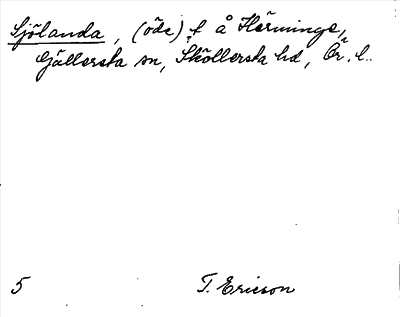 Sjölanda, (öde) t å Härminge,
Gällersta sn, Sköllersta hd, Ör. l.
5 T. Ericson